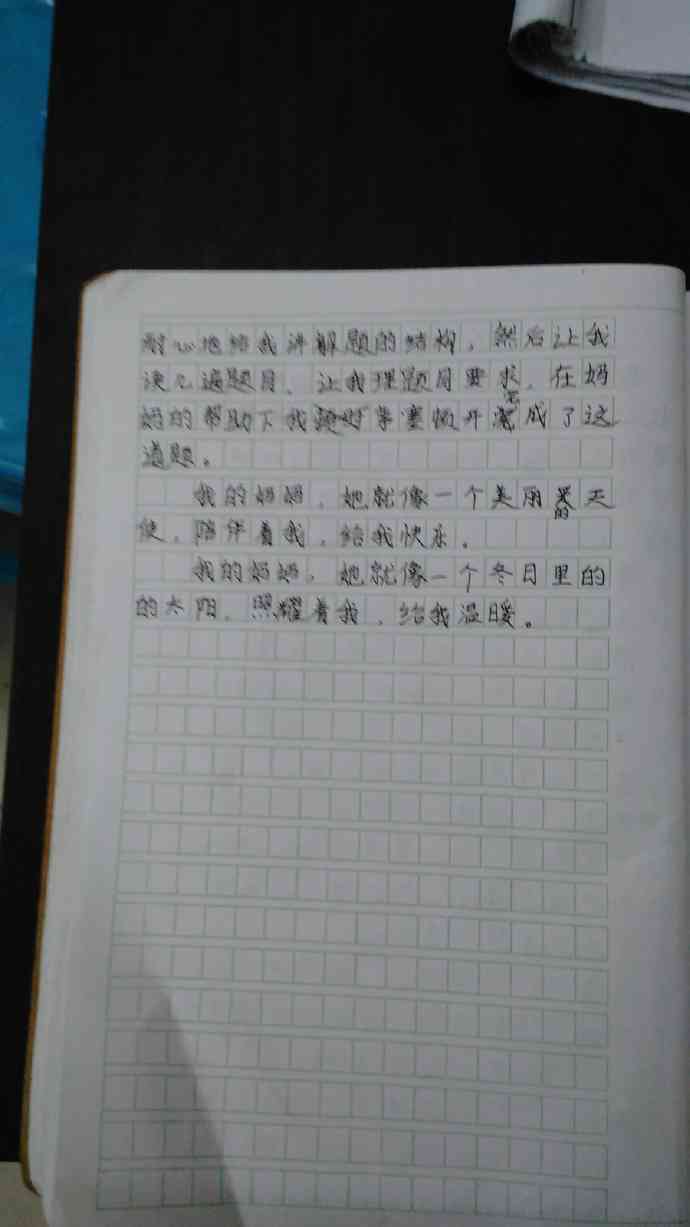 耐心地给我讲解题的结构，然后让我
读几遍题目，让我理题目要求，在妈
妈的帮助下我茅塞顿开完成了这
道题。
我的妈妈，她就像一个美丽的天
使，陪伴着我，给我快乐。
我的妈妈，她就像一个冬日里的
的太阳，照耀着我，给我温暖。